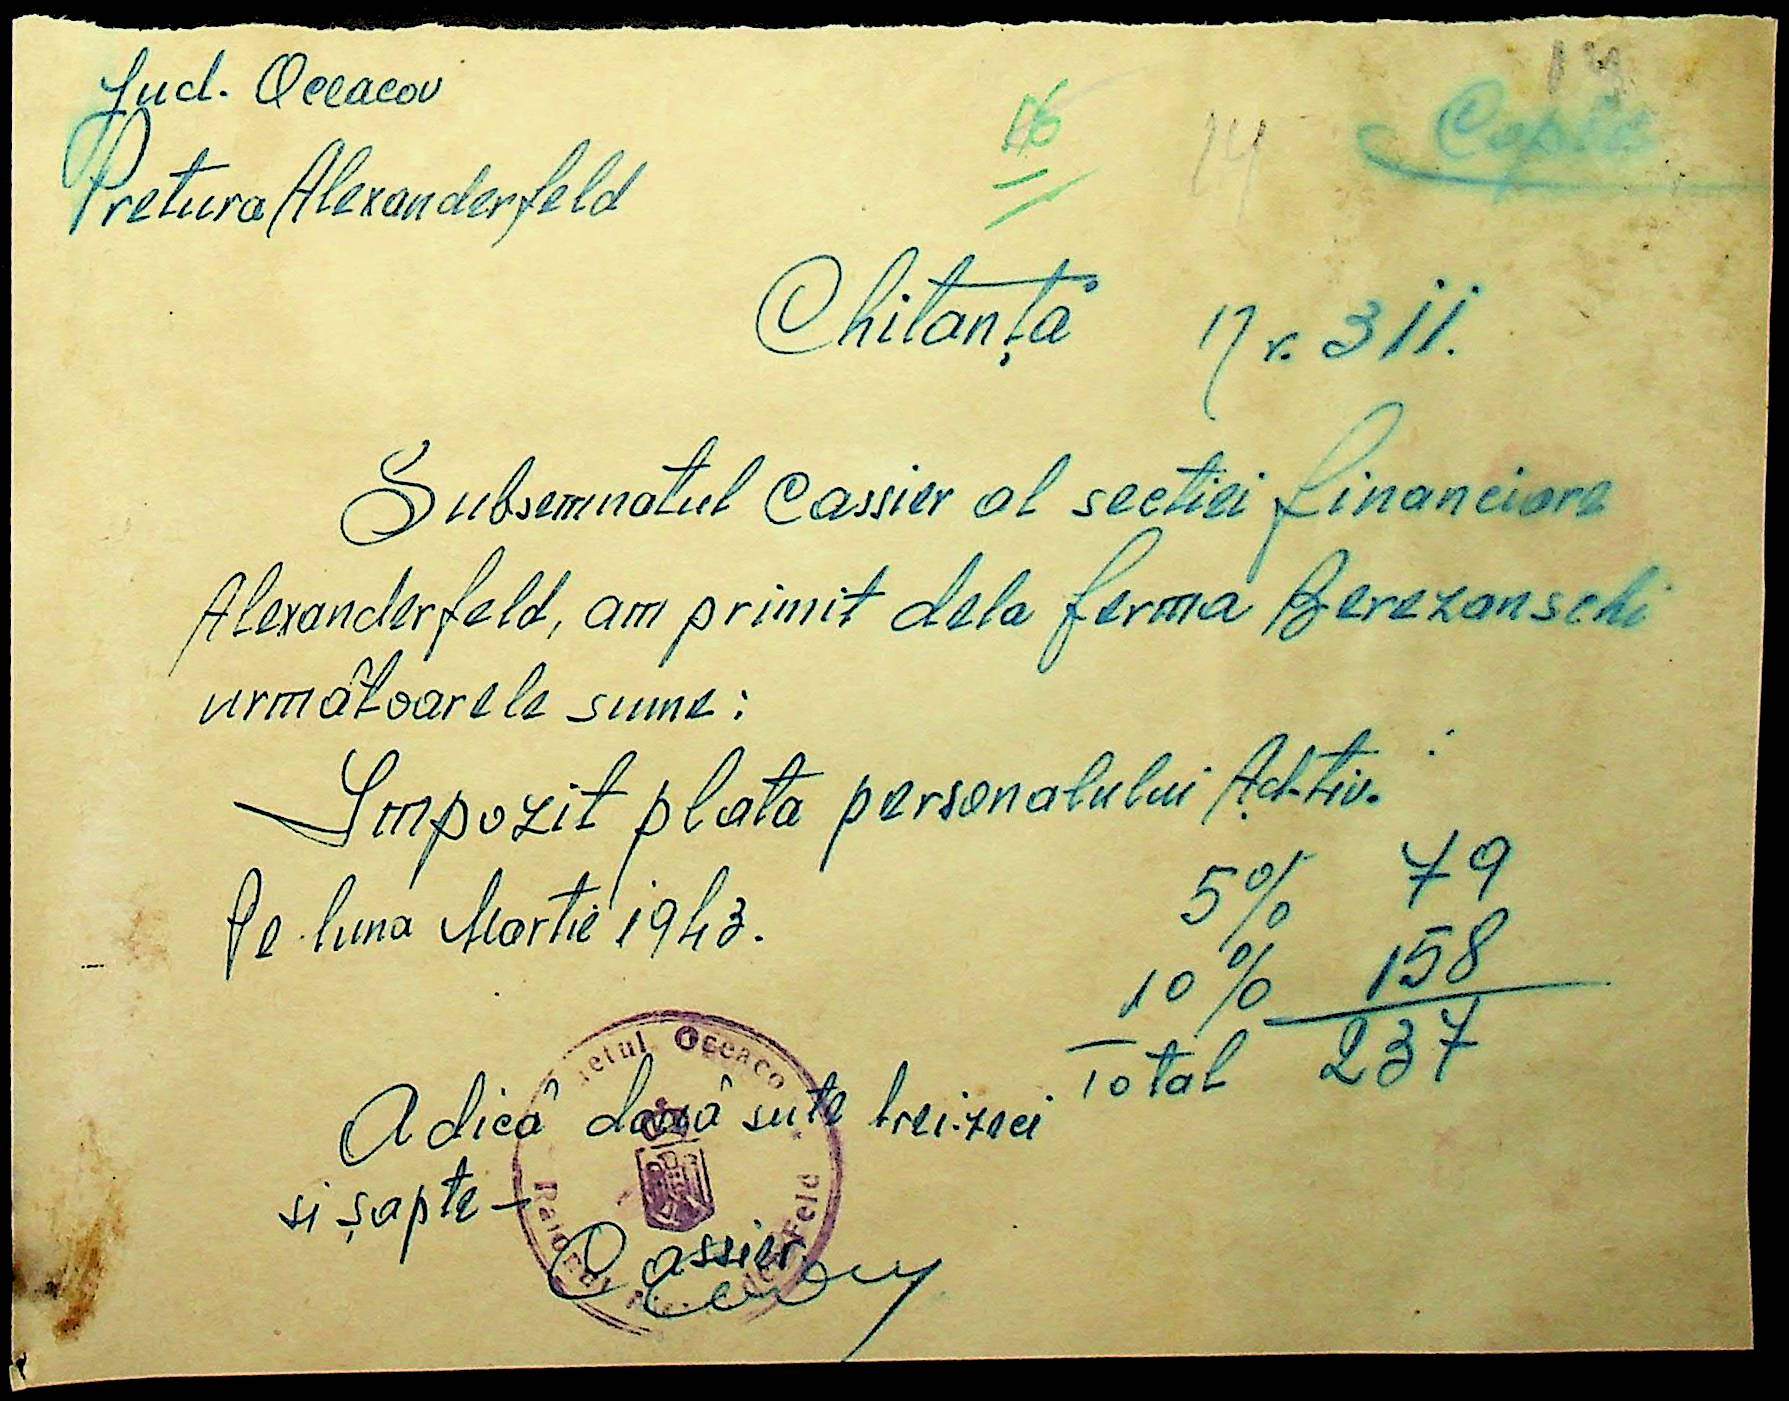 Jud. Oceacov
Pretura Alexanderfeld
16
14
Copie
Chitanță Nr. 311.
Subsemnatul Cassier al sectiei financiare
Alexanderfeld, am primit dela ferma Berezanschi
următoarele sume:
Impozit plata personalului Ad-tiv.
Pe luna Martie 1943.
5% 79
10% 158
Total 237
Adică două sute trei-zeci
si șapte –
Cassier